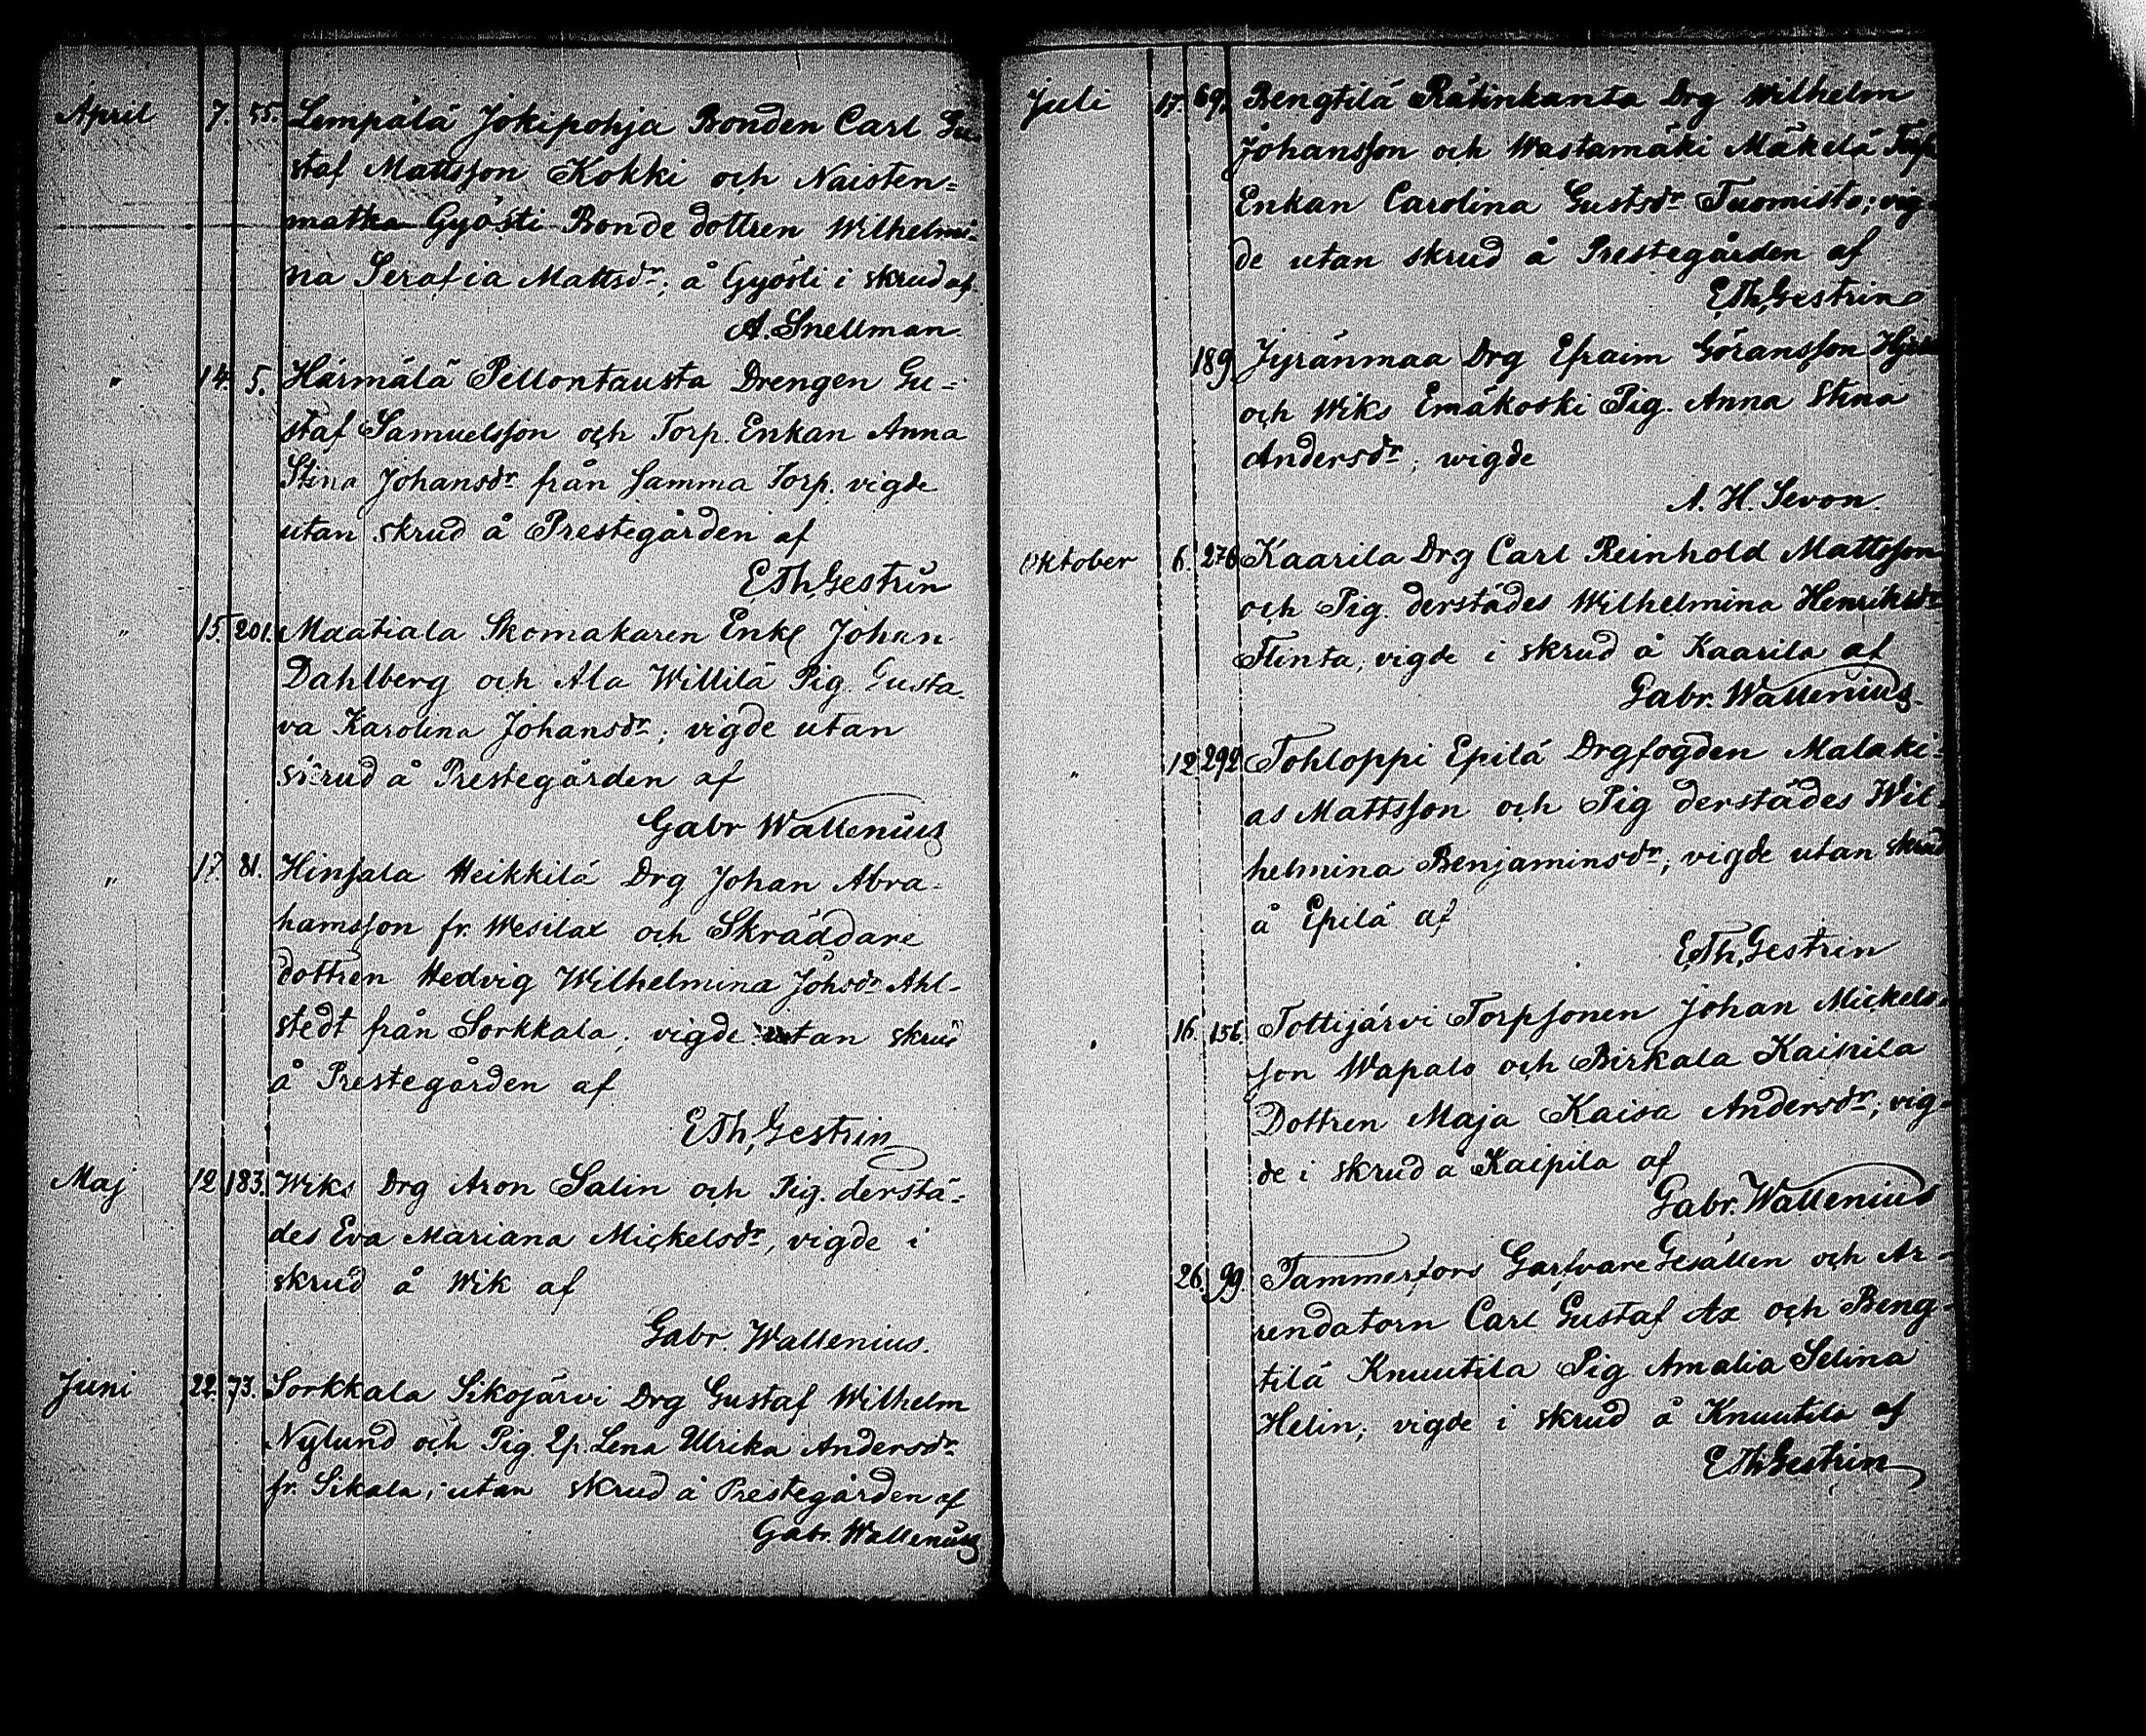 April 7. 55. Lempälä Jokipohja Bonden Carl Gu-
staf Mattsson Kokki och Naisten=
matka Gyösti Bonde dottren Wilhelmi-
na Serafia Mattsdr; å Gyösti i skrud af
A. Snellman.
" 14. 5. Härmälä Pellontausta Drengen Gu-
staf Samuelsson och Torp. Enkan Anna
Stina Johansdr från samma Torp. vigde
utan skrud å Prestegården af
E.Th.Gestrin
" 15. 201. Maatiala Skomakaren Enkl Johan
Dahlberg och Ala Willilä Pig. Gusta-
va Karolina Johansdr; vigde utan
skrud å Prestegården af
Gabr Wallenius
" 17. 81. Hinsala Heikkilä Drg Johan Abra-
hamsson fr. Wesilax och Skräddare
dottren Hedvig Wilhelmina Johsdr Ahl-
stedt från Sorkkala; vigde utan skrud
å Prestegården af
E.Th.Gestrin
Maj 12 183. Wiks Drg Aron Salin och Pig. derstä-
des Eva Mariana Mickelsdr, vigde i
skrud å Wik af
Gabr. Wallenius.
Juni 22. 73. Sorkkala Sikojärvi Drg Gustaf Wilhelm
Nylund och Pig. Lena Ulrika Andersdr
fr. Sikala; utan skrud å Prestegården af
Gabr. Wallenius
Juli 17. 69. Bengtilä Rätinkanta Drg Wilhelm
Johansson och Wastamäki Mäkelä Torp
Enkan Carolina Gustsdr Tuomisto; vig-
de utan skrud å Prestegården af
E.Th.Gestrin
189 Jyränmaa Drg Efraim Göransson
och Wiks Emäkoski Pig. Anna Stina
Andersdr; wigde
A. H. Sevon.
Oktober 6. 276 Kaarila Drg Carl Reinhold Mattsson
och Pig. derstädes Wilhelmina Henriksdr
Flinta, vigde i skrud å Kaarila af
Gabr. Wallenius.
" 12. 292 Tohloppi Epilä Drgfogden Malaki-
as Mattsson och Pig derstädes Wil-
helmina Benjaminsdr; vigde utan skrud
å Epilä af
E.Th.Gestrin
16. 156. Tottijärvi Torpsonen Johan Mickels-
son Wapalo och Birkala Kaipila
Dottren Maja Kaisa Andersdr; vig-
de i skrud å Kaipila af
Gabr. Wallenius
26. 99. Tammerfors Garfvare Gesällen och Ar-
rendatorn Carl Gustaf Ax och Beng-
tilä Knuutila Pig Amalia Selina
Helin; vigde i skrud å Knuutila af
E.Th.Gestrin